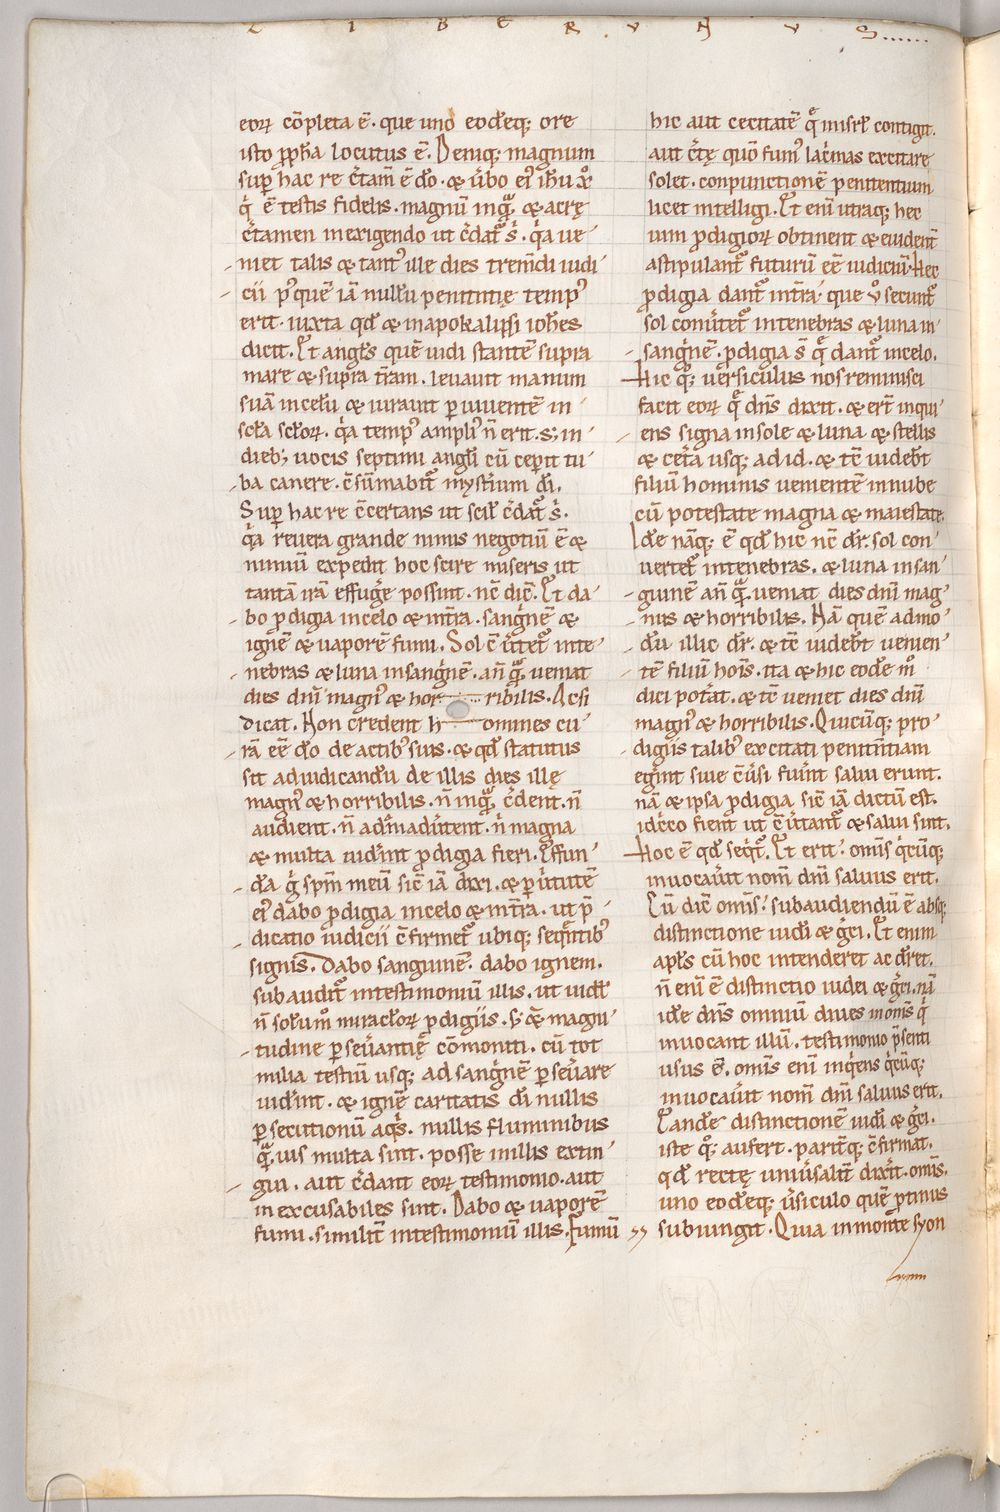 L I B E R . V N V S......
eoꝝ cōpleta ē. que uno eodēq; ore
isto ꝓph̄a locutus ē. Deniq; magnum
sup̄ hac re c̄tam̄ ē dō. & ūbo ei᾽ ih̄u xp̄o
q̇ ē testis fidelis. magnū inqͣ. & acrę
c̄tamen in exigendo ut c̄dat᷑ s̄. q̇a ue-
niet talis & tant᾽ ille dies trem̄di iudi-
cii p᾽ quē iā nullū penitn̄tię temp᾽
erit. iuxta qd̄ & in apokalipsi ioh̄es
dicit. Et angl̄s quē uidi stantē supra
mare & supra t̄ram. leuauit manum
suā in celū & iurauit ꝑ uiuentē in
scl̄a scl̄oꝝ. q̇a temp᾽ ampli᾽ n̄ erit. s; in
dieb; uocis septimi angl̄i cū cep̄it tu-
ba canere. c̄sūmabit᷑ myst̄ium dī.
Sup̄ hac re c̄certans ut scil̄ c̄dat᷑ s̄.
q̇a reuera grande nimis negotiū ē &
nimiū expedit hoc scire miseris ut
tantā irā effuḡe possint. n̄c dic̄. Et da-
bo ꝓdigia in celo & in t̄ra. sanġnē &
ignē & uaporē fumi. Sol c̄ūtet᷑ in te-
nebras & luna in sanġnē. an̄ qͣ ueniat
dies dn̄i magn᾽ & hor ribilis. Ac si
dicat. Non credent h omines cu-
rā eē dō de actib᾽ suis. & qd̄ statutus
sit ad iudicandū de illis dies illę
magn᾽ & horribilis. n̄ inqͣ c̄dent. n̄
audient. n̄ adīmadūtent. n̄ magna
& multa uid̄int ꝓdigia fieri. Effun-
dā g̊ spm̄ meū sic̄ iā dixi. & ꝑ ūtutē
ei᾽ dabo ꝓdigia in celo & in t̄ra. ut p̄-
dicatio iudicii c̄firmet᷑ ubiq; seqn̄tib᾽
signis. Dabo sanguinē. dabo ignem.
subaudit᷑ in testimoniū illis. ut uidel̄
n̄ solum̊ miracl̄oꝝ ꝓdigiis. s; & magni-
tudine ꝑseūantię cōmoniti. cū tot
milia testiū usq; ad sanġnē ꝑseūare
uid̄int. & ignē caritatis dī nullis
ꝑsecutionū aq̇s. nullis fluminibus
qͣuis multa sint. posse in illis extin-
gui. aut c̄dant eoꝝ testimonio. aut
inexcusabiles sint. Dabo & uaporē
fumi. similit̄ in testimoniū illis. Fumū
hic aut cecitatē q̄ misr̄l contigit.
aut c̄tę quō fum᾽ lac̄mas excitare
solet. conpunctionē penitentium
licet intelligi. Et eni utraq; hec
uim ꝓdigioꝝ obtinent & euident̄
astipulant᷑ futurū eē iudiciū. Hec
ꝓdigia dant᷑ in t̄ra. que ū secunt᷑
sol conūtet᷑ in tenebras & luna in
sanġnē. ꝓdigia s̄ q̄ dant᷑ in celo.
Hic q; uersiculus nos reminisci
facit eoꝝ q̄ dn̄s dixit. & er̄t inqui-
ens signa in sole & luna & stellis
& cet̄a usq; ad id. & tc̄ uideb̄t
filiū hominis uenientē in nube
cū potestate magna & maiestate.
Idē nāq; ē qd̄ hic n̄c dr̄. sol con-
vertet᷑ in tenebras. & luna in san-
guinē an̄ qͣ ueniat dies dn̄i mag-
nus & horribilis. Nā quē admo-
dū illic dr̄. & tc̄ uideb̄t uenien-
tē filiū hoīs. ita & hic eodē m̊
dici pot̄at. & tc̄ ueniet dies dn̄i
magn᾽ & horribilis. Quicūq; pro-
digiis talib᾽ excitati penitn̄tiam
eḡint siue c̄ūsi fūint salui erunt.
nā & ipsa ꝓdigia sic̄ iā dictū est.
idc̄co fient ut c̄ūtant᷑ & salui sint.
Hoc ē qd̄ seq̇t᷑. Et erit. omīs q̇cūq;
inuocaūit nom̄ dn̄i saluus erit.
Cū dic̄ omīs. subaudiendū ē absq;
distinctione iudī & ḡci. Et enim
apl̄s cū hoc intenderet ac dic̄et.
n̄ enī ē distinctio iudei & ḡci. nā
idē dn̄s omniū diues in omīs q̇
inuocant illū. testimonio p̄senti
usus ē. omīs enī inq̇ens q̇cūq;
inuocaūit nom̄ dn̄i saluus erit.
Eandē distinctionē iudī & ḡci.
iste q̊; aufert. parit̄q; c̄firmat.
qd̄ rectę uniūsalit̄ dix̄it. omīs.
uno eodēq; ūsiculo quē ꝓtinus
subiungit. Quia in monte syon